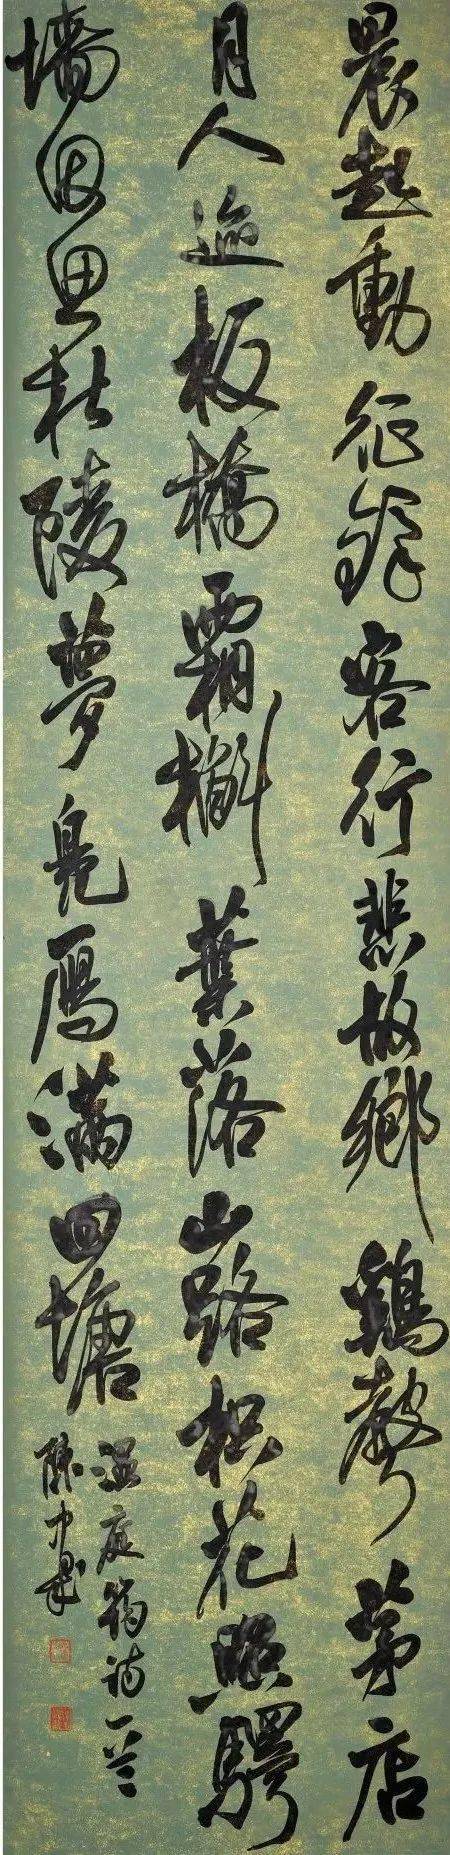 晨起動征鐸客行悲故鄉鷄聲茅店
月人迹板橋霜槲葉落山路枳花照驛
墻因思杜陵夢鳧鴈滿回塘
温庭筠詩一首
陳中